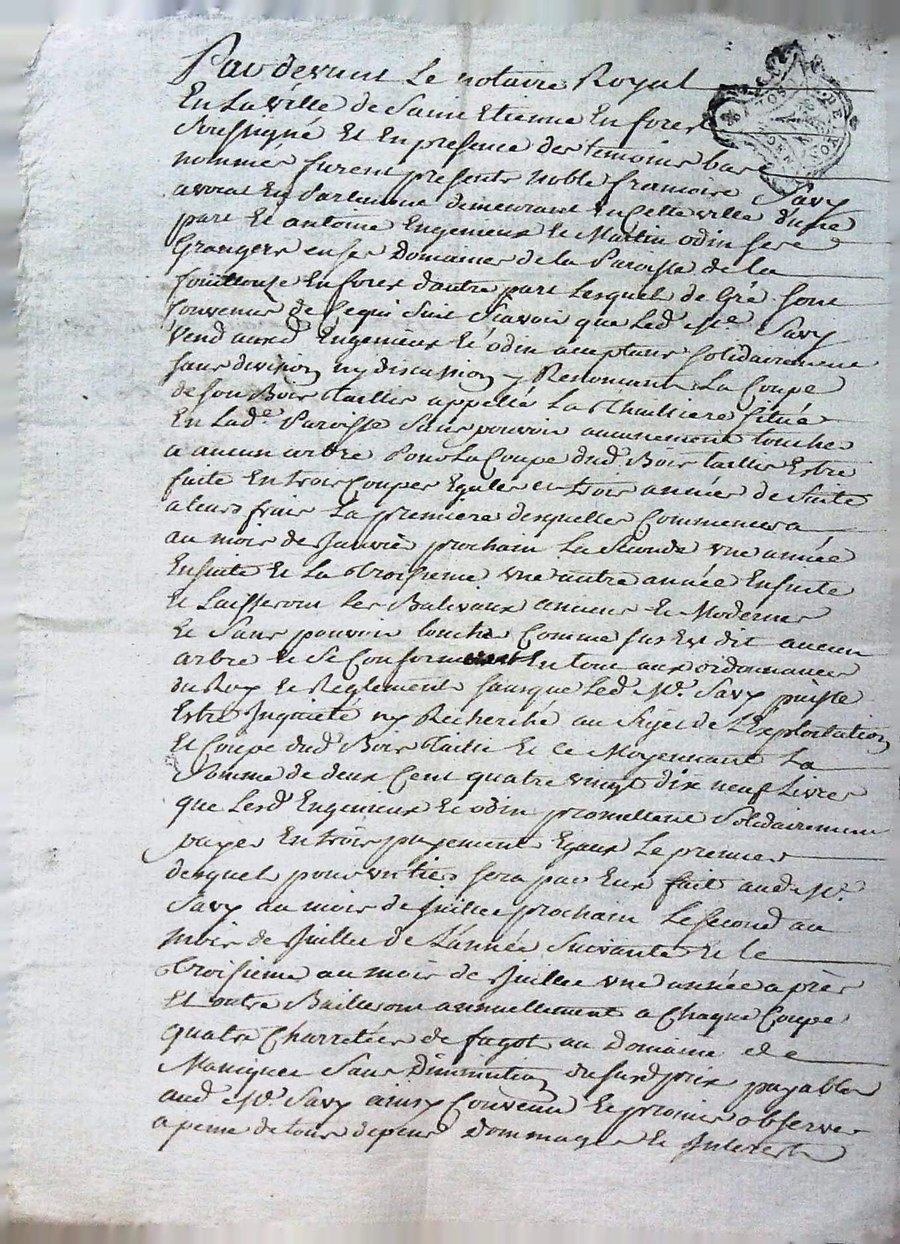 Pardevant Le notaire Royal
En La ville de Saint Etienne En forest
Soussigné Et En presence des temoins bas
nommés furent presents noble francois Savy
avocat En Parlement demeurant En Cette ville d'une
part Et antoine Engenieux Et Martin odin
Grangers en ses Domaines de la Paroisse de la
fouillouse En forez d'autre part Lesquels de Gré sont
Convenus de Ce qui Suit Scavoir que Led. Sr. Savy
Vend auxd. Engenieux Et odin aceptans Solidairement
sans division ny discussion y Renoncants La Coupe
de son Bois taillis appellé La Située
En Lade. Paroisse Sans pouvoir aucunement toucher
a aucun arbre Pour La Coupe dud. Bois taillis Estre
faite En trois Coupes Egales en trois années de Suite
a leurs frais La premiere desquelles Commencera
au mois de Janvier prochain La Seconde une année
Ensuite Et La troisieme une autre année Ensuite
Et Laisseront Les Balivaux anciens Et Modernes
Et Sans pouvoir toucher Comme sus Est dit aucun
arbre Et Se Conformeront En tout aux ordonnances
du Roy Et Reglements sans que Led. Mr. Savy puisse
Estre Inquieté ny Recherché au Sujet de L'Exploitation
Et Coupe dud. Bois taillis Et ce Moyennant La
Somme de deux Cent quatre vingt dix neuf Livres
que Lesd. Engenieux Et odin promettent Solidairement
payer En trois payements Egaux Le premier
desquels pour un tiers sera par Eux fait aud. Mr.
Savy au mois de Juillet prochain Le Second au
mois de Juillet de L'année Suivante Et le
troisieme au mois de Juillet une année après
Et outre Bailleront annuellement a Chaque Coupe
quatre Charretées de fagots au Domaine de
Maniquet Sans Diminution du susd. prix payables
aud. Mr. Savy ainsy Convenu Et promis observer
a peine de tous depens Dommages Et Interests